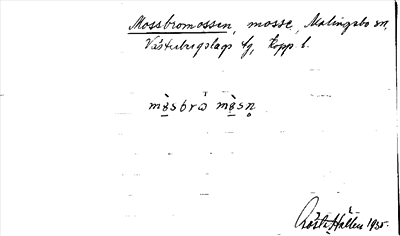 Mossbromossen, mosse, Malingsbo sn,
Västerbergslags fg, Kopp. l.
mɵ̀sbrɷ mɵ̀sn̥
Gösta Hallén 1935.